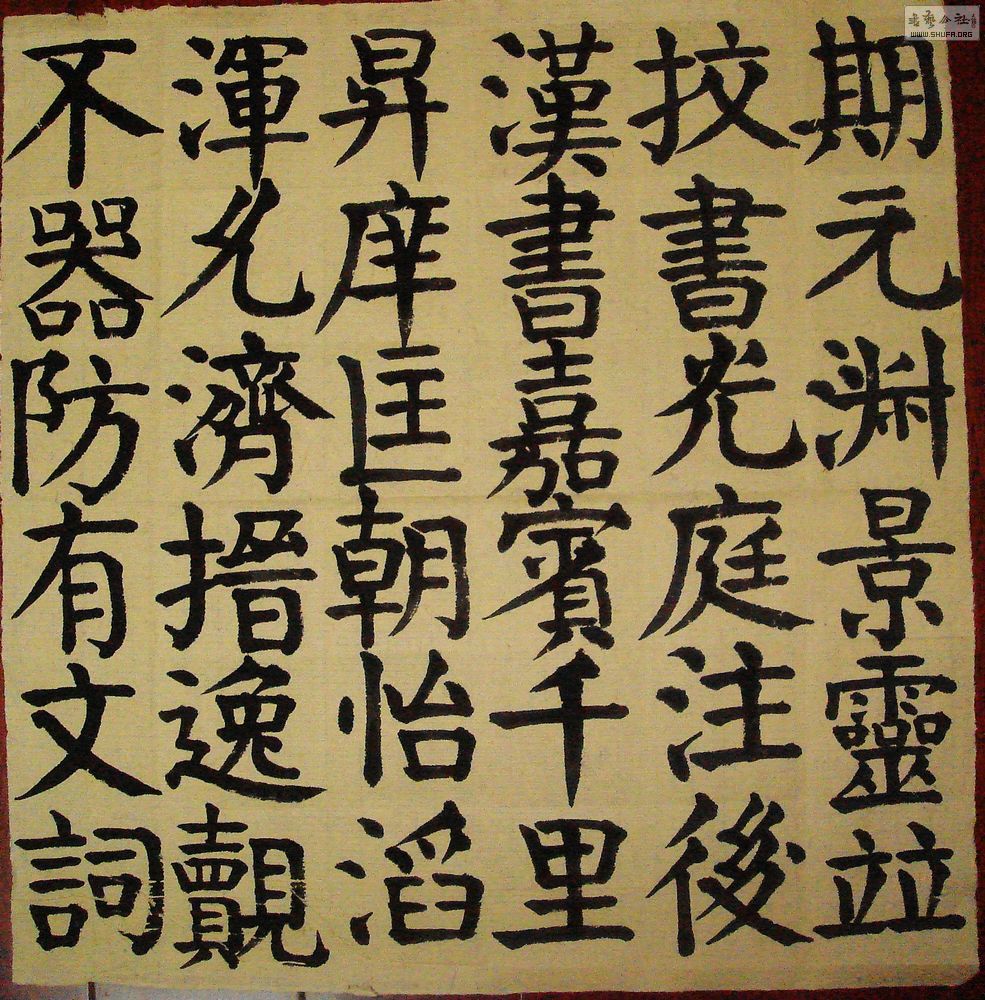 期元渊景靈並
挍書光庭注後
漢書嘉賓千里
昇庠匡朝怡滔
渾允濟搢逸覿
不器防有文詞
WWW.SHUFA.ORG